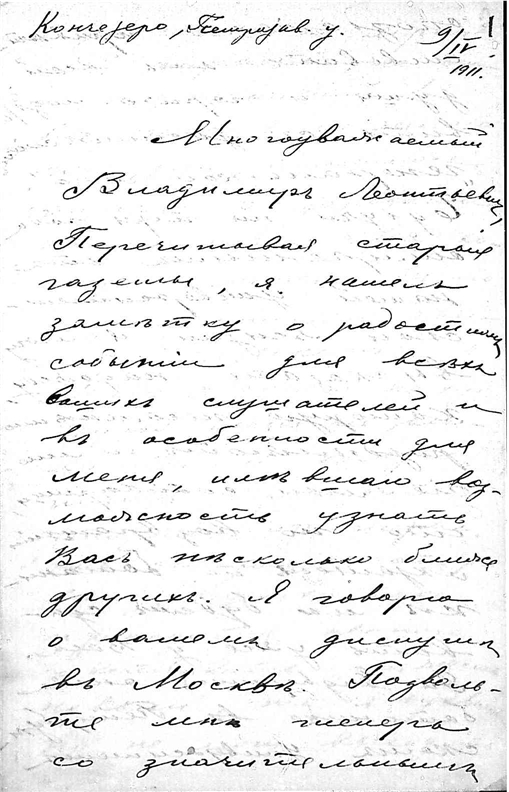 Кончезеро, Петрозав. у.
1
9/IV
1911.
Многоуважаемый
Владимиръ Леонтьевич,
Перечитывая старыя
газеты, я нашелъ
замѣтку о радостномъ
событіи для всѣхъ
Вашихъ слушателей и
въ особенности для
меня, имѣвшаго воз-
можность узнать
Васъ нѣсколько ближе
другихъ. Я говорю
о вашемъ диспутѣ
въ Москвѣ. Позволь-
те мнѣ теперь
со значительнымъ